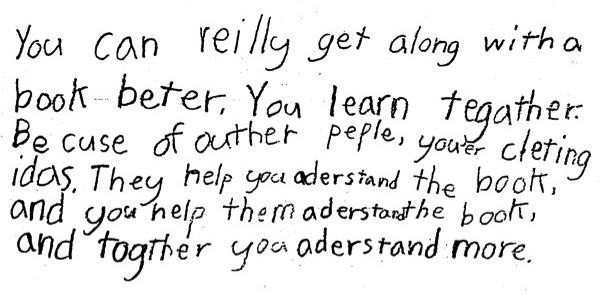 You can reilly get along with a
book beter. You learn tegather.
Be cuse of outher peple, you'er cleting
idas. They help you aderstand the book,
and you help them aderstant the book,
and togther you aderstand more.